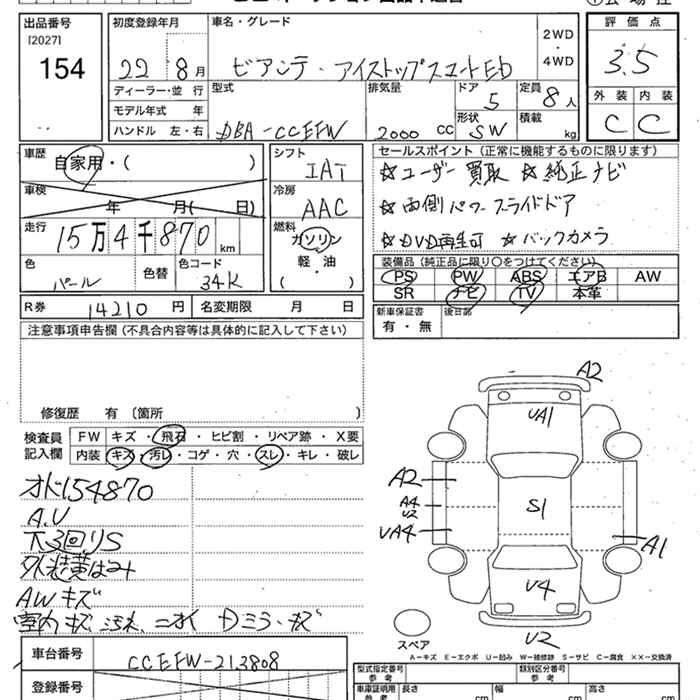 出品番号
[2027]
154
初度登録年月
22 8月
車名・グレード
ビアンテ・アイストップスマートEd
2WD
・
4WD
評価点
3.5
外装 内装
C C
ディーラー・並行
モデル年式 年
ハンドル 左・右
型式
DBA-CCEFW
排気量
2000 CC
ドア
5
定員
8人
形状
SW
積載
kg
車歴
自家用・( )
車検
年 月( 日)
走行
15万4千870 km
色
パール
色替
色コード
34K
シフト
IAT
冷房
AAC
燃料
ガソリン
軽・油
( )
セールスポイント(正常に機能するものに限ります)
☆ユーザー買取 ☆純正ナビ
☆両側パワースライドドア
☆DVD再生可 ☆バックカメラ
装備品(純正品に限り○をつけてください)
PS PW ABS エアB AW
SR ナビ TV 本革
R券 14210円 名変期限 月 日
新車保証書
有・無
後日部
注意事項申告欄(不具合内容等は具体的に記入して下さい)
修復歴 有〔箇所 〕
検査員
記入欄
FW キズ・飛石・ヒビ割・リペア跡・X要
内装 キズ・汚レ・コゲ・穴・スレ・キレ・破レ
オド154870
A.U
下3回りS
AWキズ
A2
UA1
A2
A4
U2
UA4
S1
A1
U4
U2
スペア
A-キズ E-エクボ U-凹み W-補修跡 S-サビ C-腐食 XX-交換済
車台番号
CCEFW-213808
登録番号
型式指定番号
参考
類別区分番号
参考
車庫証明用
参考
長さ cm
幅 cm
高さ cm